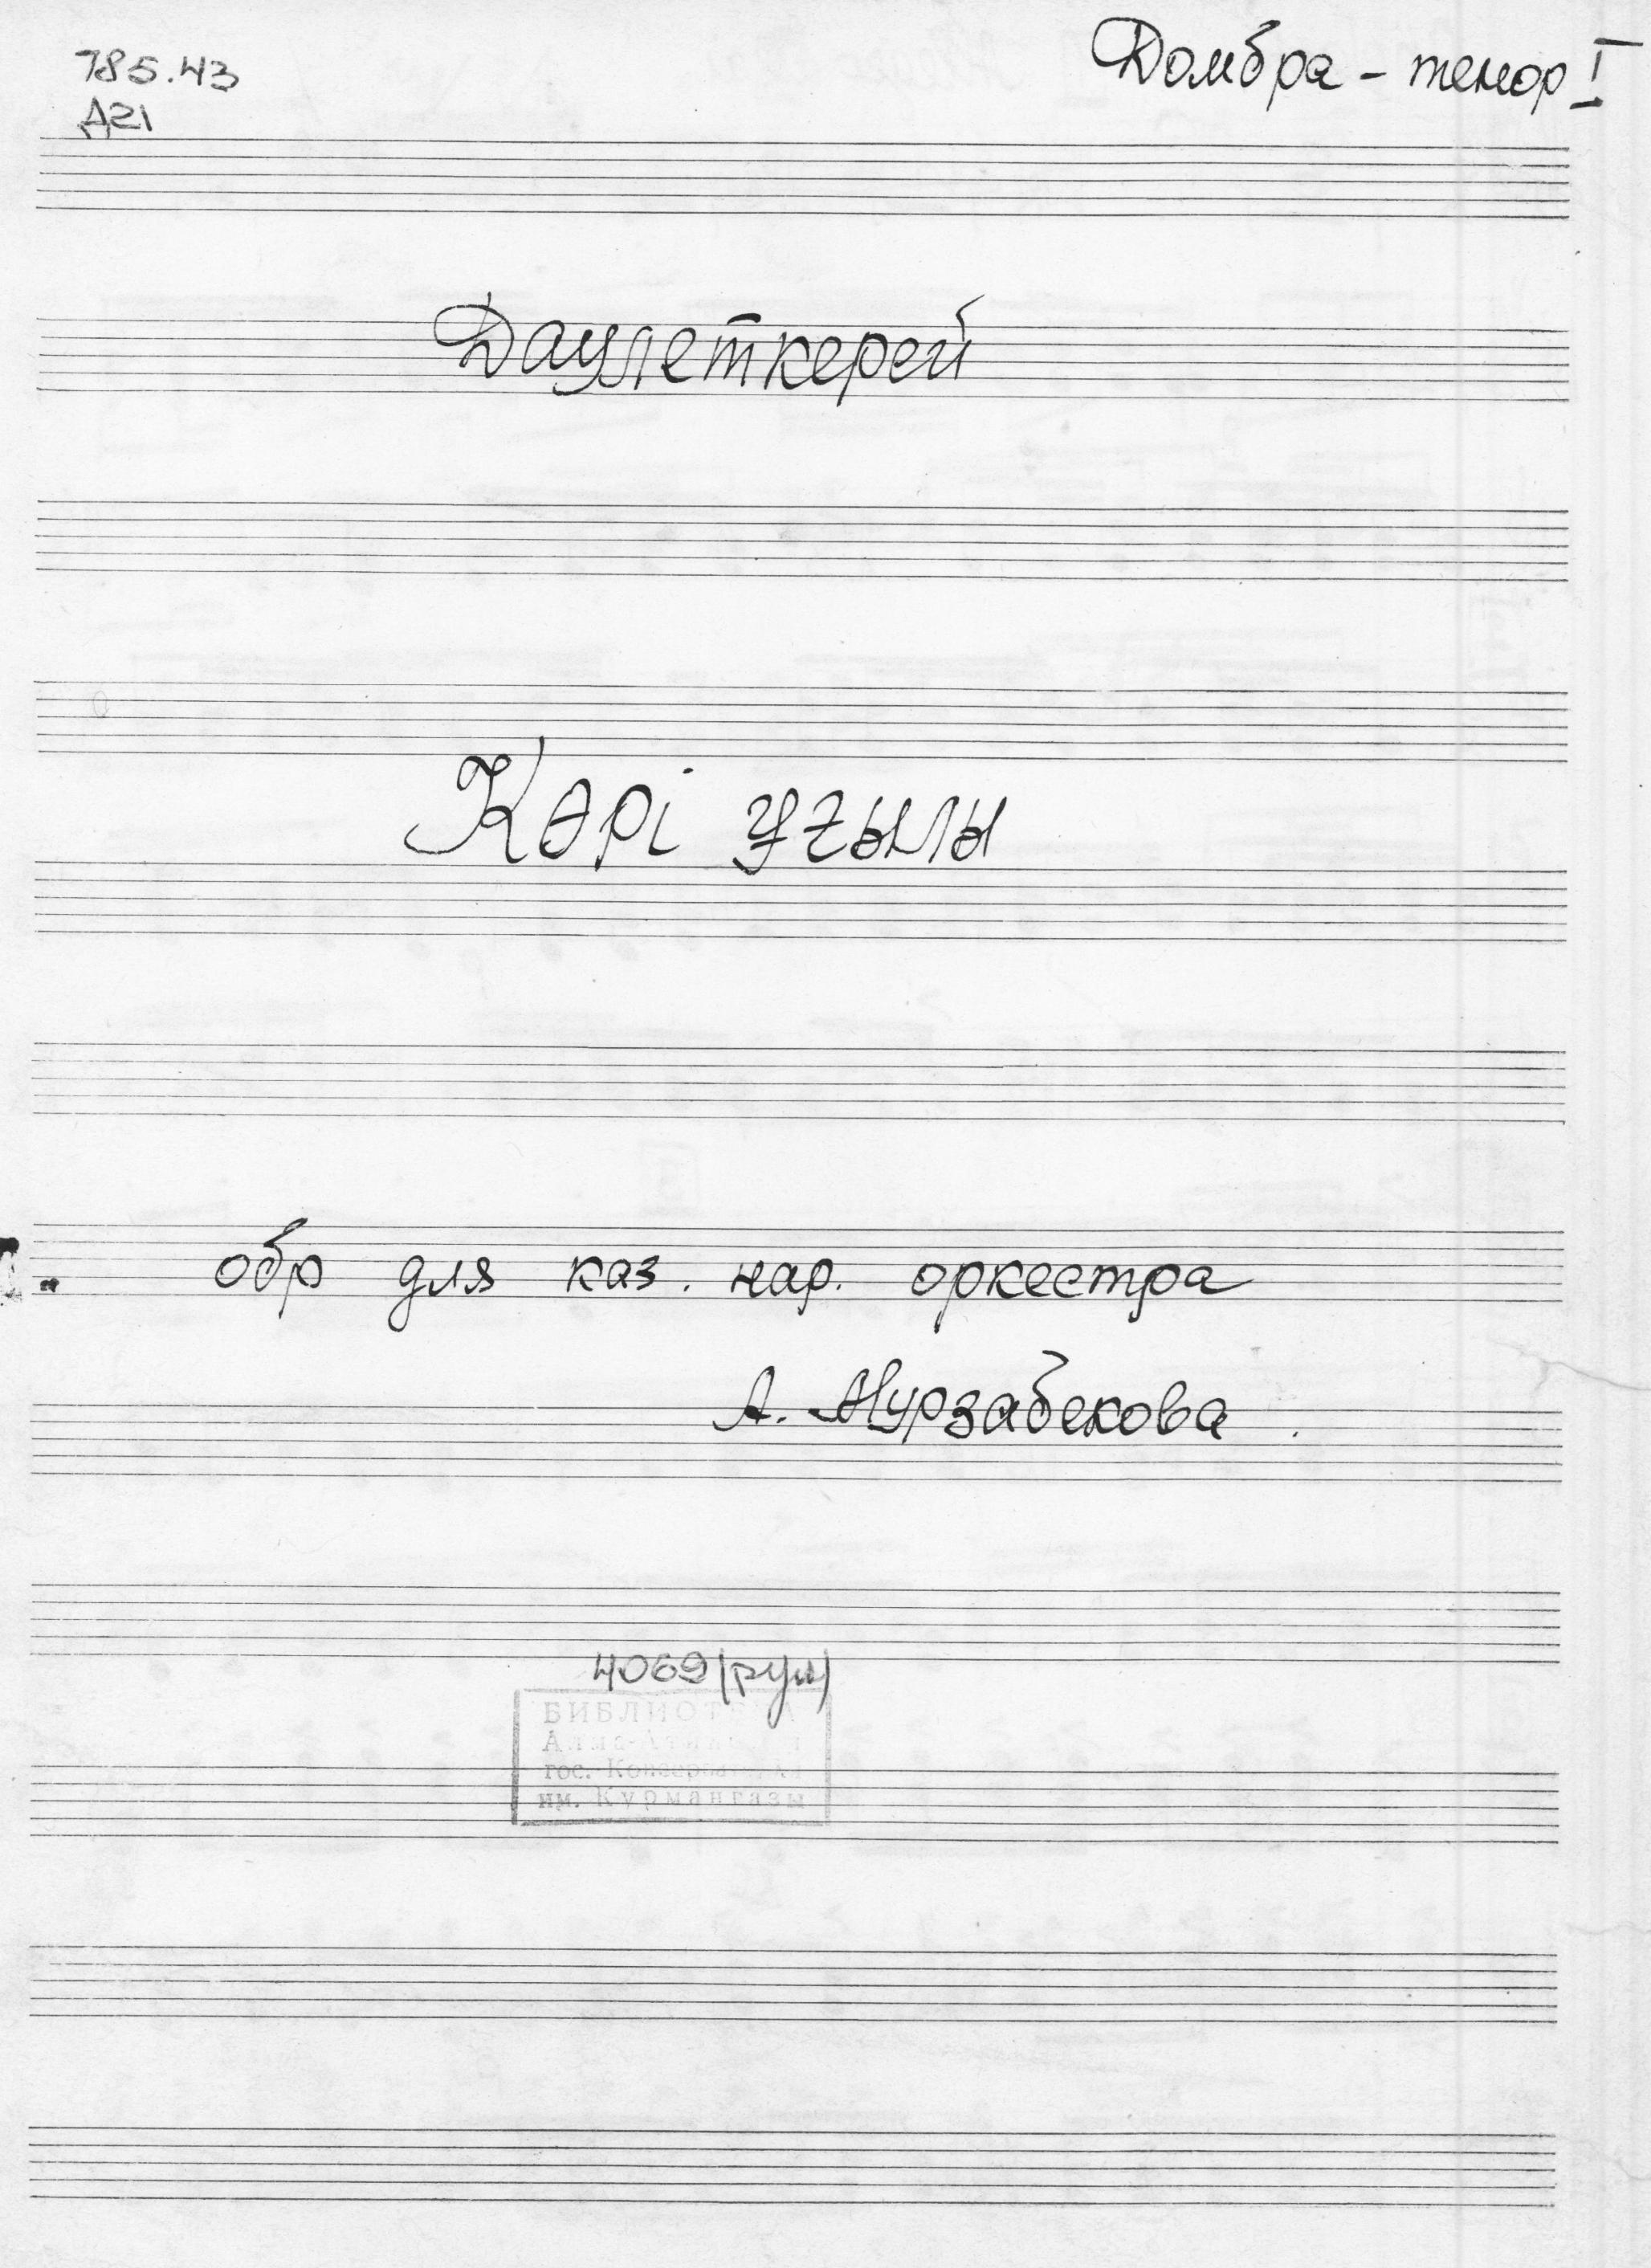 785.43
Д21
Домбра - тенор I
Даулеткерей
Кәрі ұғылы
обр для каз. нар. оркестра
А. Нурзабекова.
4069(рук)
БИБЛИОТЕКА
Алма-Атинской
гос. Консерватории
им. Курмангазы